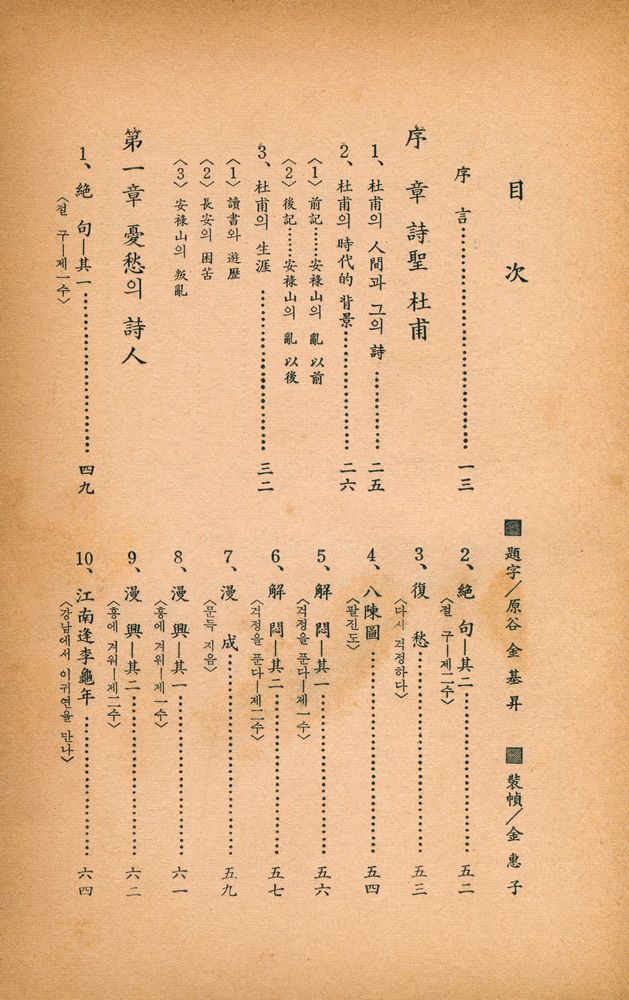 目 次
序 言……………………一三
序 章 詩聖 杜甫
1、杜甫의 人間과 그의 詩……………二五
2、杜甫의 時代的 背景……………二六
〈1〉前記……安祿山의 亂 以前
〈2〉後記……安祿山의 亂 以後
3、杜甫의 生涯……………三二
〈1〉讀書와 遊歷
〈2〉長安의 困苦
〈3〉安祿山의 叛亂
第一章 憂愁의 詩人
1、絶 句─其一……………四九
〈절 구─제一수〉
■ 題字／原谷 金基昇 ■ 裝幀／金惠子
2、絶 句─其二……………五二
〈절 구─제二수〉
3、復 愁……………五三
〈다시 걱정하다〉
4、八陳圖……………五四
〈팔진도〉
5、解 悶─其一……………五六
〈걱정을 푼다─제一수〉
6、解 悶─其二……………五七
〈걱정을 푼다─제二수〉
7、漫 成……………五九
〈문득 지음〉
8、漫 興─其一……………六一
〈흥에 겨워─제一수〉
9、漫 興─其二……………六二
〈흥에 겨워─제二수〉
10、江南逢李龜年……………六四
〈강남에서 이귀연을 만나〉